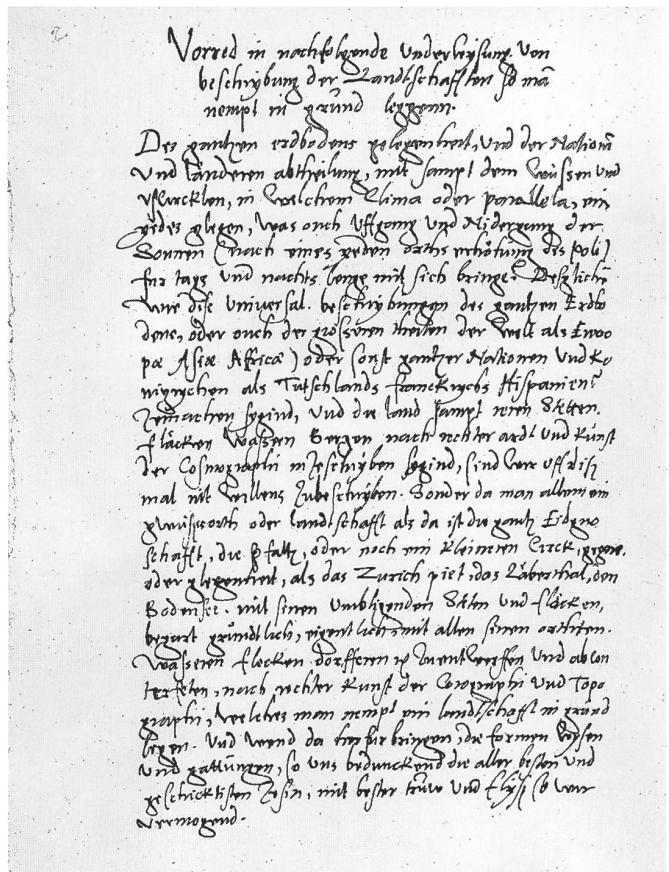 Vorred in nachfolgende underleysung von
beschrybung der Landtschafften so man
nempt in grund leggenn.
Des gantzen erdbodens gelegenheit, und der Nationen
und länderen abtheilung, mit sampt dem wüssen und
in welchem Clima oder parallela, ein
yedes glegen, was ouch uffgang und Nidergang der
Sonnen (nach eines yeden orths erhöhung des Poli)
für tags und nachts lenge mit sich bringe. Desglichen
wie dise universal beschrybungen des gantzen Erdbo
dens, oder ouch der grösseren theilen der Welt als Euro
pæ Asiæ Africæ) oder sonst gantzer Nationen und Kö
nigrychen als Tütschlands franckrychs Hispaniens
zemachen sygind, und die land sampt iren Stetten.
fläcken Wassren Bergen nach rechter ardt und Kunst
der Cosmographii zeschryben sygind, sind wir uff diß
mal nit willens zubeschryben. Sonder da man allein ein
gwüß orth oder landtschafft als da ist die gantz Eidgno
schafft, die Pfaltz, oder noch ein kleineren Circk,
oder glegenheit, als das Zurich piet, das den
Bodensee. mit sinen umbligenden Stetten und fläcken,
begärt gründtlich, eigentlich mit allen sinen
Wasseren flecken dörfferen zu entwerffen und abcon
terfeten, nach rechter Kunst der Corographi und Topo
graphi, welches man nempt ein landtschafft in grund
legen. Und wend da herfür bringen, die formen wysen
und gattungen, so uns bedunckend die aller besten und
geschicktisten zesin, mit bester trüw und flyß so wir
vermogend.